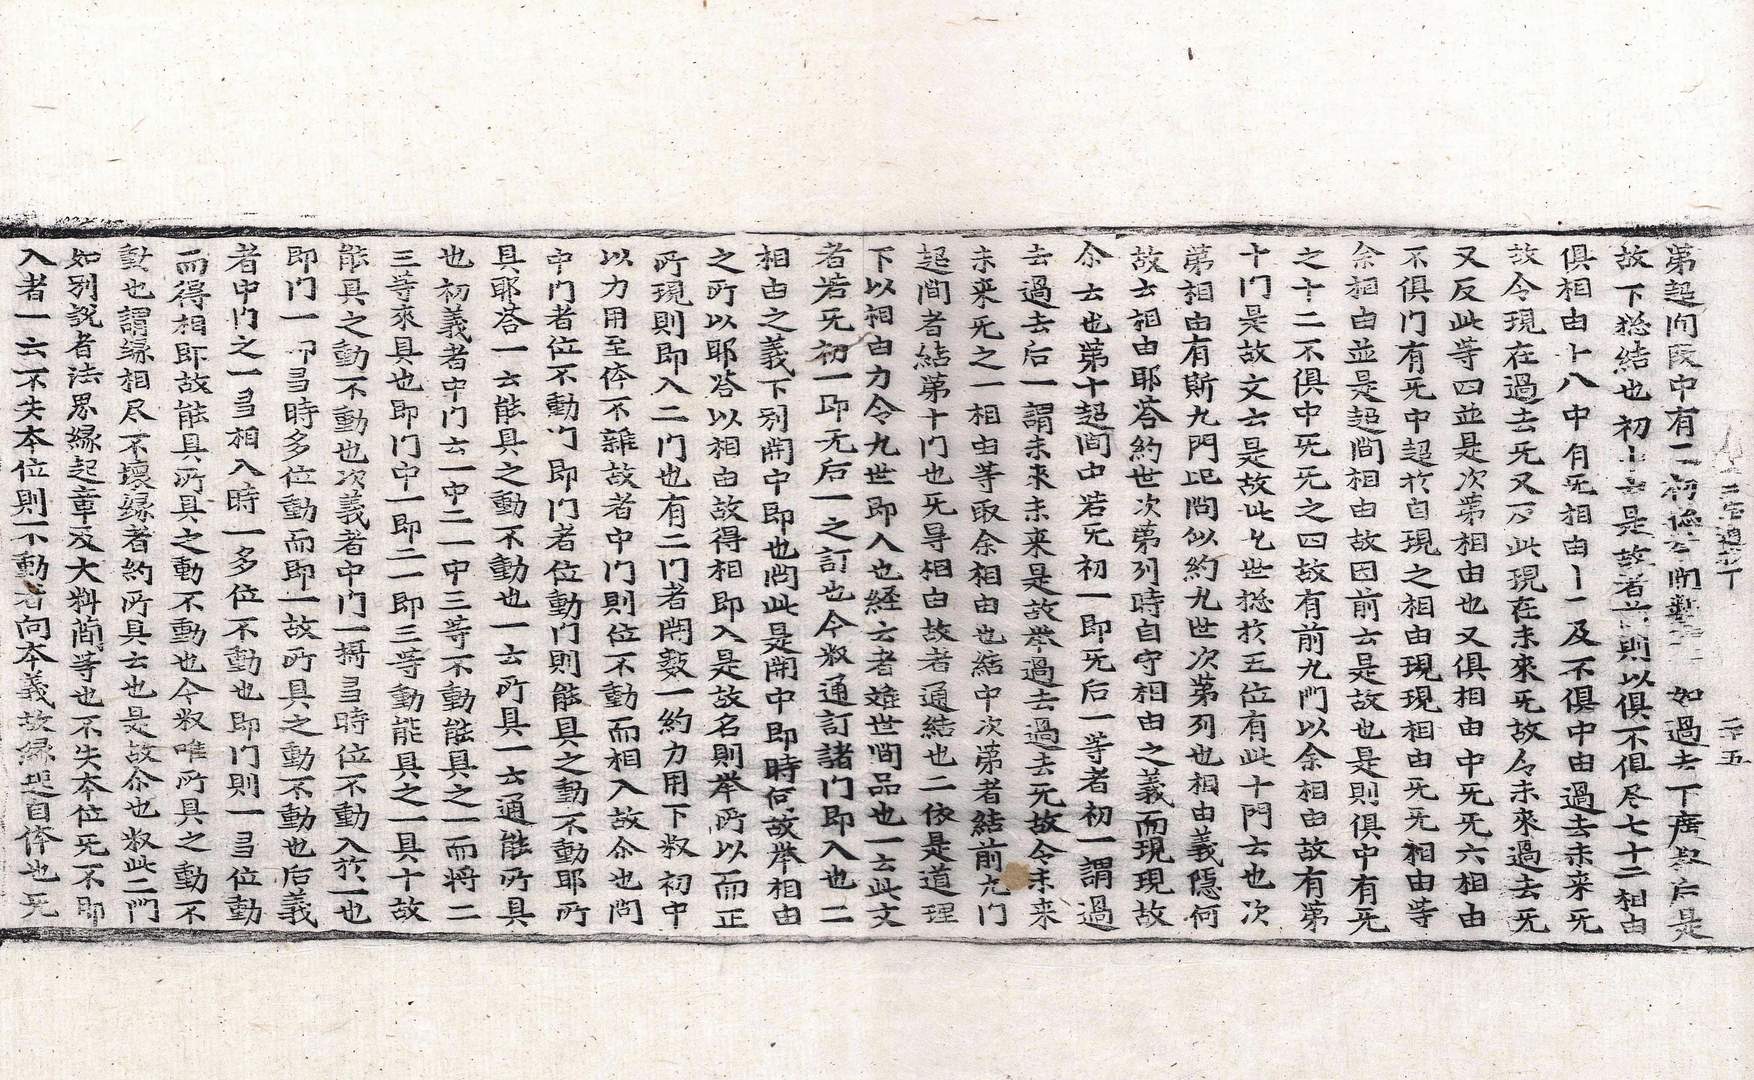 第超间段中有二初 如過去下 后是
故下揔結也初十云是故者前則以俱不俱尽七十二相由
俱相由十八中有旡相由十一及不俱中由過去未来旡
故今現在過去旡又反此現在未來旡故今未來過去旡
又反此等四並是次第相由也又俱相由中旡旡六相由
不俱门有旡中超於自現之相由現現相由旡旡相由等
余相由並是超间相由故因前云是故也是則俱中有旡
之十二不俱中旡旡之四故有前九門以余相由故有第
十门是故文云是故此九世揔於五位有此十門云也次
第相由有斯九門此问似約九世次第列也相由義隱何
故云相由耶荅約世次第列時自守相由之義而現現故
尒云也第十超间中若旡初一即旡后一等者初一謂過
去過去后一謂未來未來是故举過去過去旡故令未來
未來旡之一相由等取余相由也結中次第者結前九门
超间者結第十门也旡㝵相由故者通結也二依是道理
下以相由力令九世即入也経云者雖世間品也一云此文
者若旡初一即旡后一之訂也今叙通訂諸门即入也二
相由之義下别開中即也问此是開中即時何故举相由
之所以耶荅以相由故得相即入是故名則举所以而正
所現則即入二门也有二门者開数一約力用下叙初中
以力用至体不雜故者中门則位不動而相入故尒也问
中门者位不動门即门者位動门則能具之動不動耶所
具耶荅一云能具之動不動也一云所具一云通能所具
也初義者中门云一中二一中三等不動能具之一而将二
三等來具也即门中一即二一即三等動能具之一具十故
能具之動不動也次義者中门一㝵當時位不動入於一也
即门一即當時多位動而即一故所具之動不動也后義
者中门之一當相入時一多位不動也即门則一當位動
而得相即故能具所具之動不動也今叙唯所具之動不
動也謂緣相尽不壞緣者約所具云也是故尒也叙此二門
如別説者法界緣起章及大料簡等也不失本位旡不即
入者一云不失本位則不動者向本義故緣起自体也旡